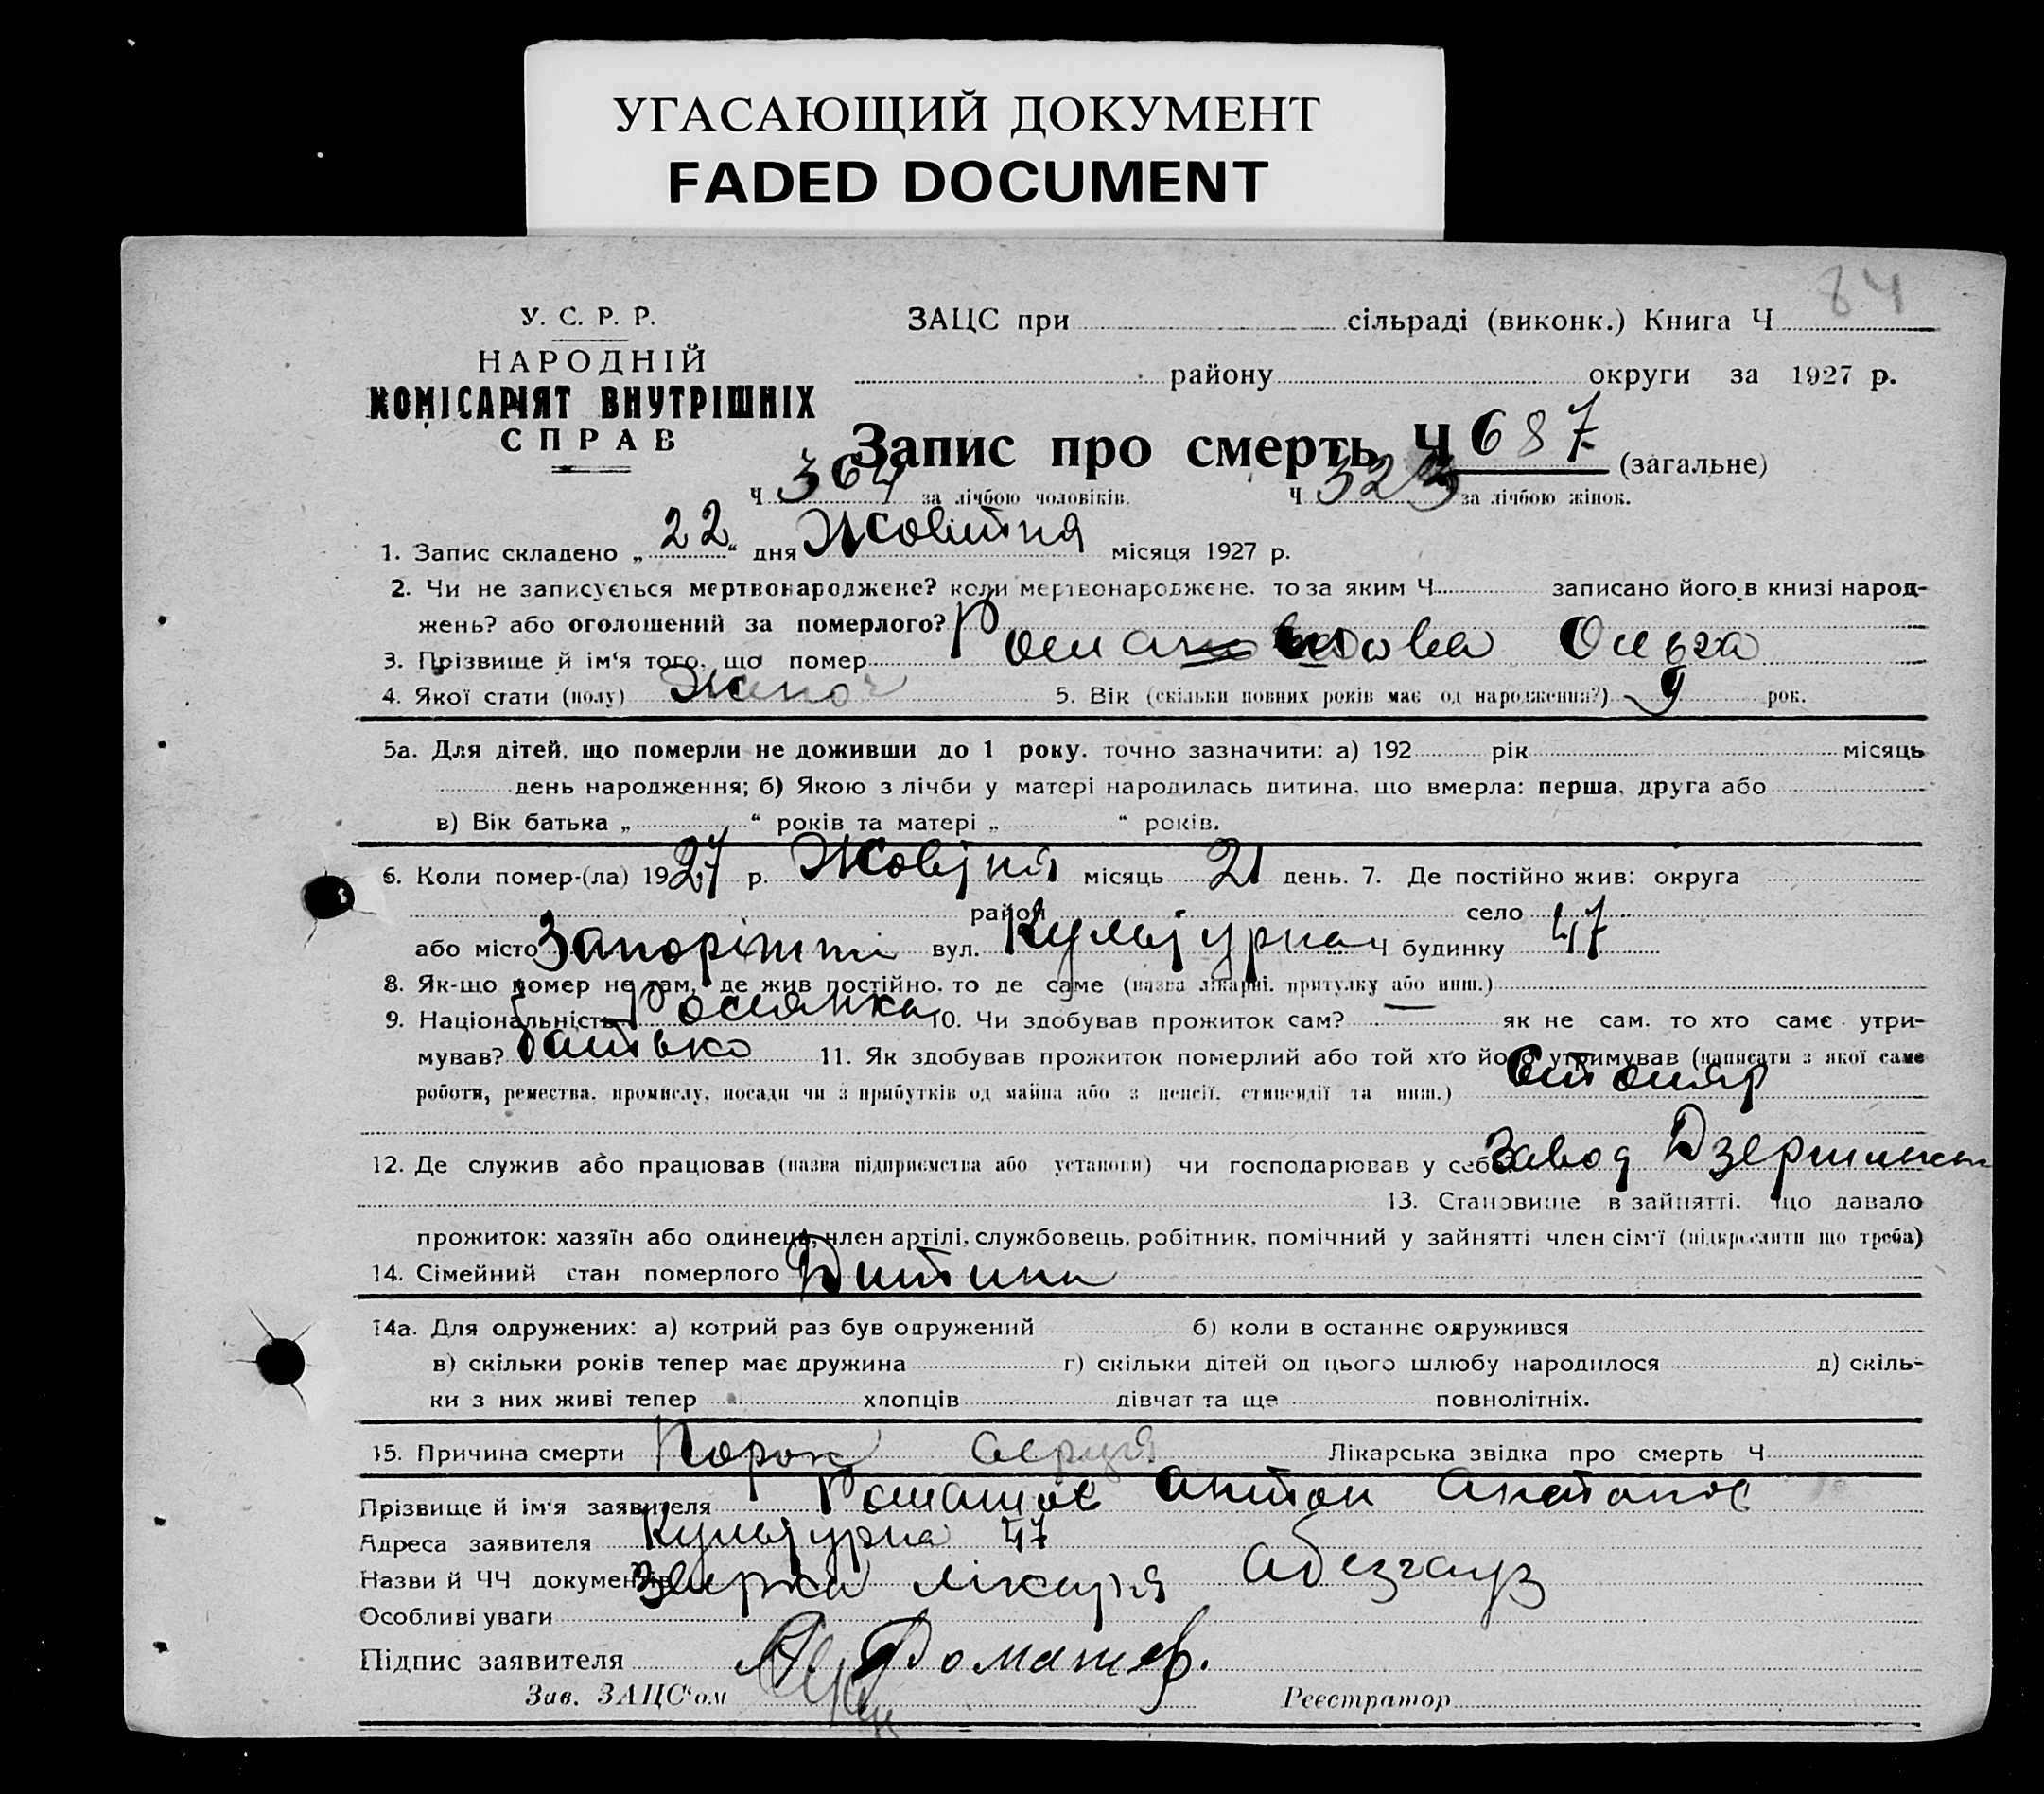 УГАСАЮЩИЙ ДОКУМЕНТ
FADED DOCUMENT
84
У. С. Р. Р.
НАРОДНІЙ
КОМІСАРІЯТ ВНУТРІШНІХ
СПРАВ
ЗАЦС при сільраді (виконк.) Книга Ч
району округи за 1927 р.
Запис про смерть Ч 687 (загальне)
Ч 364 за лічбою чоловіків. Ч 323 за лічбою жінок.
1. Запис складено „22“ дня Жовтня місяця 1927 р.
2. Чи не записується мертвонароджене? коли мертвонароджене, то за яким Ч записано його в книзі народ-
жень? або оголошений за померлого?
3. Прізвище й ім‘я того, що помер Ольга
4. Якої стати (полу) Жіноч 5. Вік (скільки повних років має од народження?) 9 рок.
5а. Для дітей, що померли не доживши до 1 року, точно зазначити: а) 192 рік місяць
день народження; б) Якою з лічби у матері народилась дитина, що вмерла: перша, друга або
в) Вік батька „ “ років та матері „ “ років.
6. Коли помер-(ла) 1927 р. Жовтня місяць 21 день. 7. Де постійно жив: округа
район село
або місто Запоріжжі вул. Культурна Ч будинку 47
8. Як-що помер не там, де жив постійно, то де саме (назва лікарні, притулку або инш.)
9. Національність Росіянка 10. Чи здобував прожиток сам? — як не сам, то хто саме утри-
мував? батько 11. Як здобував прожиток померлий або той хто його утримував (написати з якої саме
роботи, ремества, промислу, посади чи з прибутків од майна або з пенсії, стипендії та инш.) Столяр
12. Де служив або працював (назва підприємства або установи) чи господарював у себе Завод Дзержинськ
13. Становище в зайнятті, що давало
прожиток: хазяїн або одинець, член артілі, службовець, робітник, помічний у зайнятті член сім‘ї (підкреслити що треба)
14. Сімейний стан померлого Дитина
14а. Для одружених: а) котрий раз був одружений б) коли в останнє одружився
в) скільки років тепер має дружина г) скільки дітей од цього шлюбу народилося д) скіль-
ки з них живі тепер хлопців дівчат та ще повнолітніх.
15. Причина смерти Порок серця Лікарська звідка про смерть Ч
Прізвище й ім‘я заявителя Ромашов Антон Антонов
Адреса заявителя Культурна 47
Назви й ЧЧ документів лікаря Абезгауз
Особливі уваги
Підпис заявителя А. Ромашев.
Зав. ЗАЦС‘ом Реєстратор